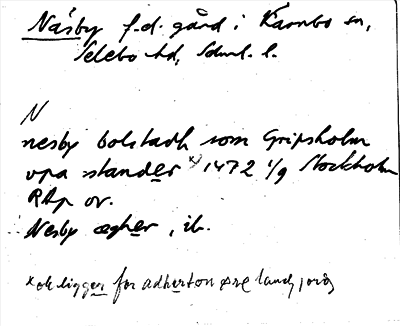 Näsby f.d. gård i Kärnbo sn,
Selebo hd, Södml. l.
N
nesby bolstadh som Gripsholm
vpa stander x) 1472 1/9 Stockholm
RAp or.
Nesby ægher, ib.
x ok ligger for adherton øre landz jord